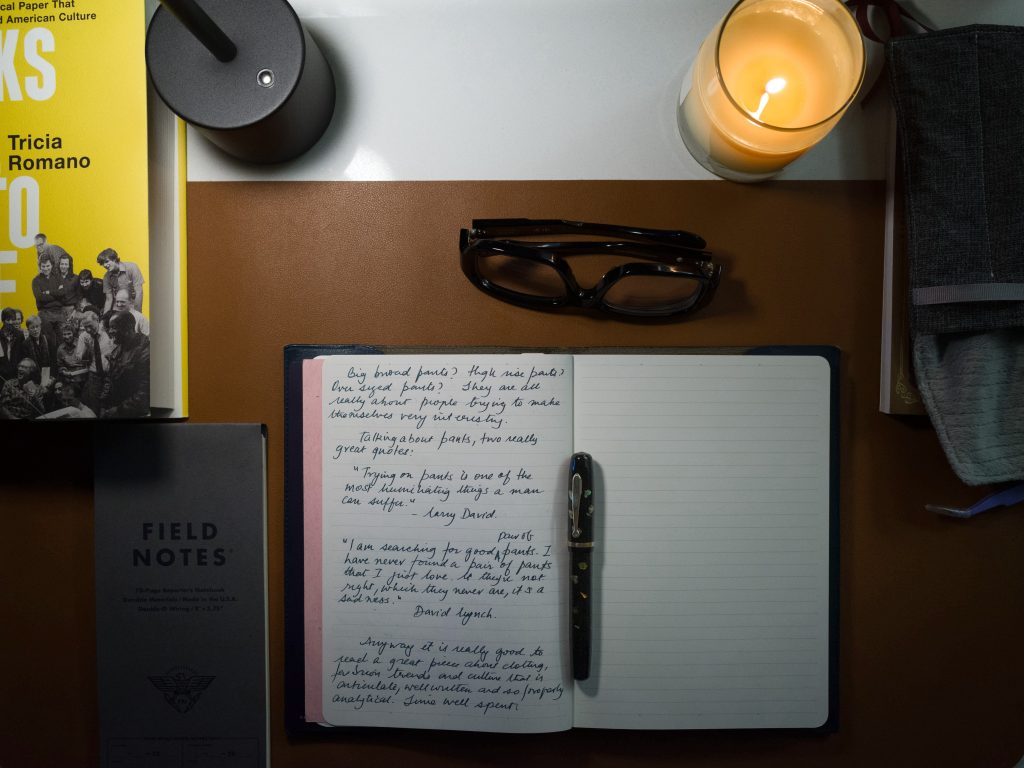 cal Paper That
d American Culture
KS
Tricia
Romano
TO
E
FIELD
NOTES
72-Page Reporter's Notebook
Durable Materials / Made in the U.S.A.
Double-O Wiring / 
Big broad pants? High rise pants?
Over sized pants? They are all
really about people trying to make
themselves very interesting.
Talking about pants, two really
great quotes:
"Trying on pants is one of the
most humiliating things a man
can suffer."
- Larry David.
pair of
"I am searching for good ^ pants. I
have never found a pair of pants
that I just love. If they're not
right, which they never are, it's a
sadness."
David Lynch.
Anyway it is really good to
read a great piece about clothing,
fashion trends and culture that is
articulate, well written and so properly
analytical. Time well spent.